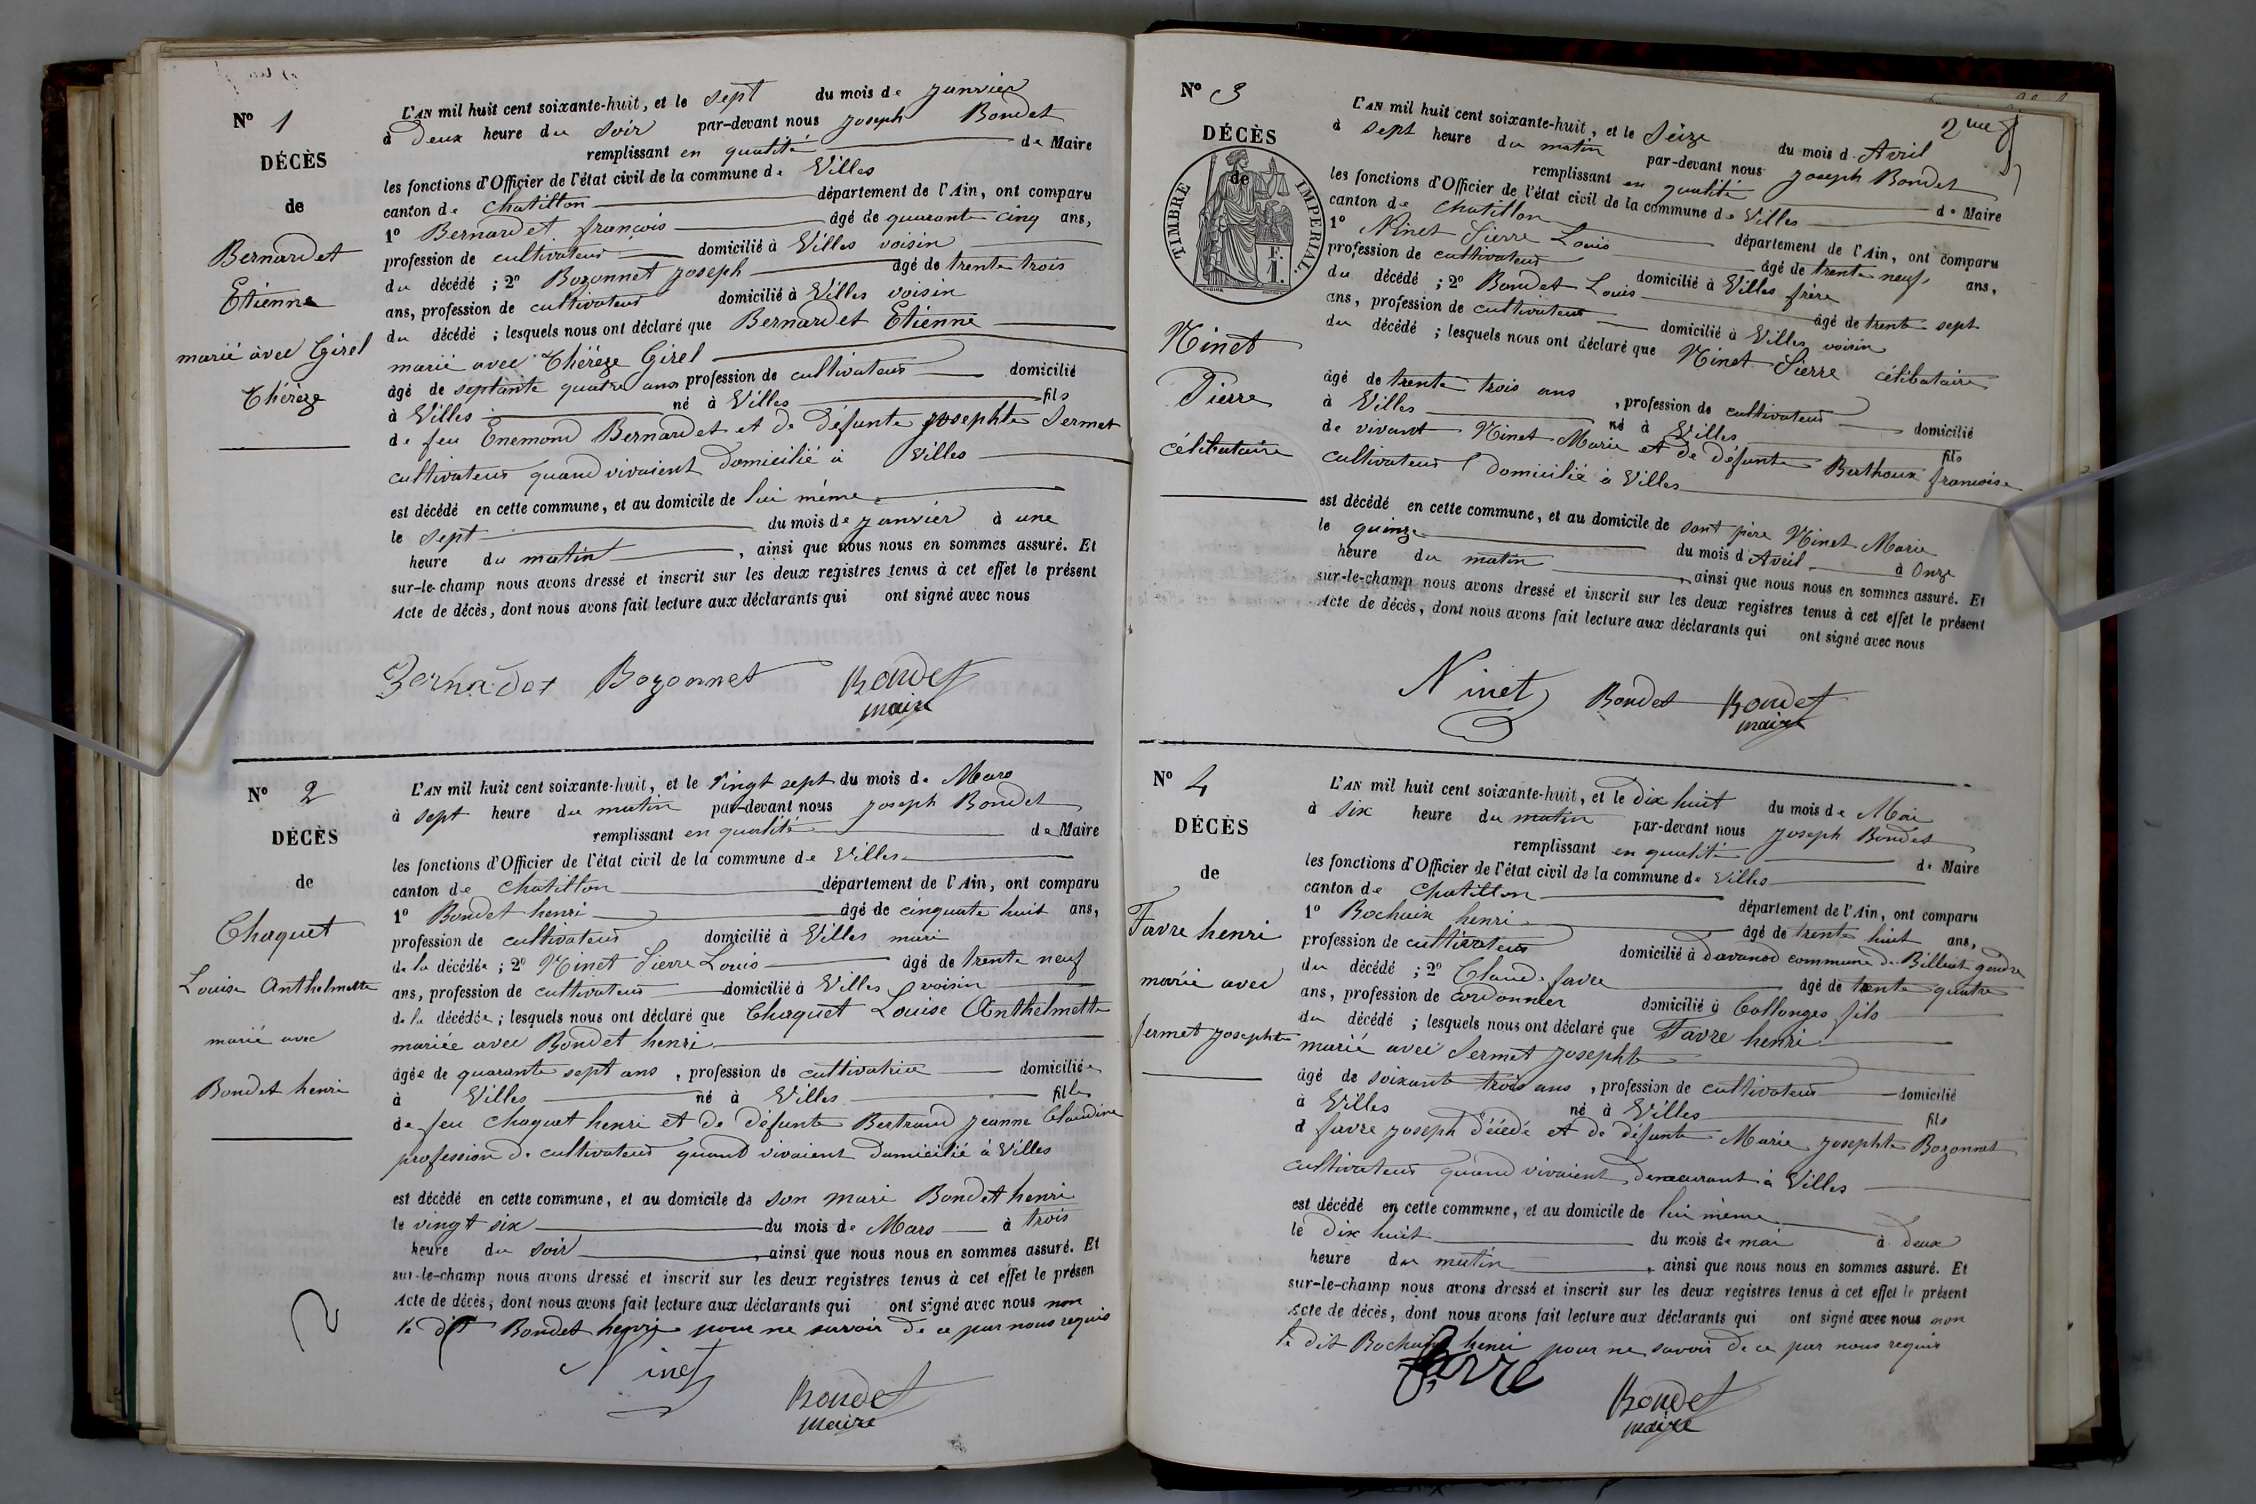 N° 1
DÉCÈS
de
Bernardet
Etienne
marié avec Girel
Thérèze
L'AN mil huit cent soixante-huit, et le sept du mois de janvier
à deux heure du soir par-devant nous joseph Bondet
remplissant en qualité de Maire
les fonctions d'Officier de l'état civil de la commune de Villes
canton de Chatillon département de l'Ain, ont comparu
1° Bernardet françois âgé de quarante cinq ans,
profession de cultivateur domicilié à Villes voisin
du décédé ; 2° Bozonnet joseph âgé de trente trois
ans, profession de cultivateur domicilié à Villes voisin
du décédé ; lesquels nous ont déclaré que Bernardet Etienne
marié avec Thérèze Girel
âgé de septante quatre ans profession de cultivateur domicilié
à Villes né à Villes fils
de feu Enemond Bernardet et de défunte josephte Sermet
cultivateur quand vivaient domicilié à Villes
est décédé en cette commune, et au domicile de lui même
le sept du mois de janvier à une
heure du matin , ainsi que nous nous en sommes assuré. Et
sur-le-champ nous avons dressé et inscrit sur les deux registres tenus à cet effet le présent
Acte de décès, dont nous avons fait lecture aux déclarants qui ont signé avec nous
Bernadet Bozonnet Bondet
maire
N° 2
DÉCÈS
de
Chaquet
Louise Anthelmette
marié avec
Bondet henri
L'AN mil huit cent soixante-huit, et le vingt sept du mois de Mars
à sept heure du matin par-devant nous joseph Bondet
remplissant en qualité de Maire
les fonctions d'Officier de l'état civil de la commune de Villes
canton de Chatillon département de l'Ain, ont comparu
1° Bondet henri âgé de cinquate huit ans,
profession de cultivateur domicilié à Villes mari
de la décédée ; 2° Ninet Pierre Louis âgé de trente neuf
ans, profession de cultivateur domicilié à Villes voisin
de la décédée ; lesquels nous ont déclaré que Chaquet Louise Anthelmette
mariée avec Bondet henri
âgée de quarante sept ans , profession de cultivatrice domiciliée
à Villes né à Villes fille
de feu Chaquet henri et de défunte Bertrand jeanne Claudine
profession de cultivateur quand vivaient domicilié à Villes
est décédé en cette commune, et au domicile de son mari Bondet henri
le vingt six du mois de Mars à trois
heure du soir , ainsi que nous nous en sommes assuré. Et
sur-le-champ nous avons dressé et inscrit sur les deux registres tenus à cet effet le présen
Acte de décès, dont nous avons fait lecture aux déclarants qui ont signé avec nous non
le dit Bondet henri pour ne savoir de ce par nous requis
Ninet
Bondet
maire
N° 3
DÉCÈS
de
TIMBRE IMPÉRIAL.
Ninet
Pierre
célibataire
L'AN mil huit cent soixante-huit, et le Seize du mois d'Avril
à sept heure du matin par-devant nous joseph Bondet
remplissant en qualité de Maire
les fonctions d'Officier de l'état civil de la commune de Villes
canton de Chatillon département de l'Ain, ont comparu
1° Ninet Pierre Louis âgé de trente neuf ans,
profession de cultivateur domicilié à Villes frère
du décédé ; 2° Bondet Louis âgé de trente sept
ans, profession de cultivateur domicilié à Villes voisin
du décédé ; lesquels nous ont déclaré que Ninet Pierre célibataire
âgé de trente trois ans , profession de cultivateur domicilié
à Villes né à Villes fils
de vivant Ninet Marie et de défunte Berthoux françoise
cultivateur domicilié à Villes
est décédé en cette commune, et au domicile de sont père Ninet Marie
le quinze du mois d'Avril à Onze
heure du matin , ainsi que nous nous en sommes assuré. Et
sur-le-champ nous avons dressé et inscrit sur les deux registres tenus à cet effet le présent
Acte de décès, dont nous avons fait lecture aux déclarants qui ont signé avec nous
Ninet Bondet Bondet
maire
N° 4
DÉCÈS
de
Favre henri
marié avec
sermet josephte
L'AN mil huit cent soixante-huit, et le dix huit du mois de Mai
à six heure du matin par-devant nous joseph Bondet
remplissant en qualité de Maire
les fonctions d'Officier de l'état civil de la commune de Villes
canton de Chatillon département de l'Ain, ont comparu
1° Bochaix henri âgé de trente huit ans,
profession de cultivateur domicilié à davanod commune de Billiat gendre
du décédé ; 2° Claude favre âgé de trente quatre
ans, profession de cordonnier domicilié à Collonges fils
du décédé ; lesquels nous ont déclaré que Favre henri
marié avec Sermet josephte
âgé de soixante trois ans , profession de cultivateur domicilié
à Villes né à Villes fils
d favre joseph décédé et de défunte Marie josephte Bozonnet
cultivateur quand vivaient demeurant à Villes
est décédé en cette commune, et au domicile de lui même
le dix huit du mois de mai à deux
heure du matin , ainsi que nous nous en sommes assuré. Et
sur-le-champ nous avons dressé et inscrit sur les deux registres tenus à cet effet le présent
Acte de décès, dont nous avons fait lecture aux déclarants qui ont signé avec nous non
le dit Bochaix henri pour ne savoir de ce par nous requis
favre
Bondet
maire